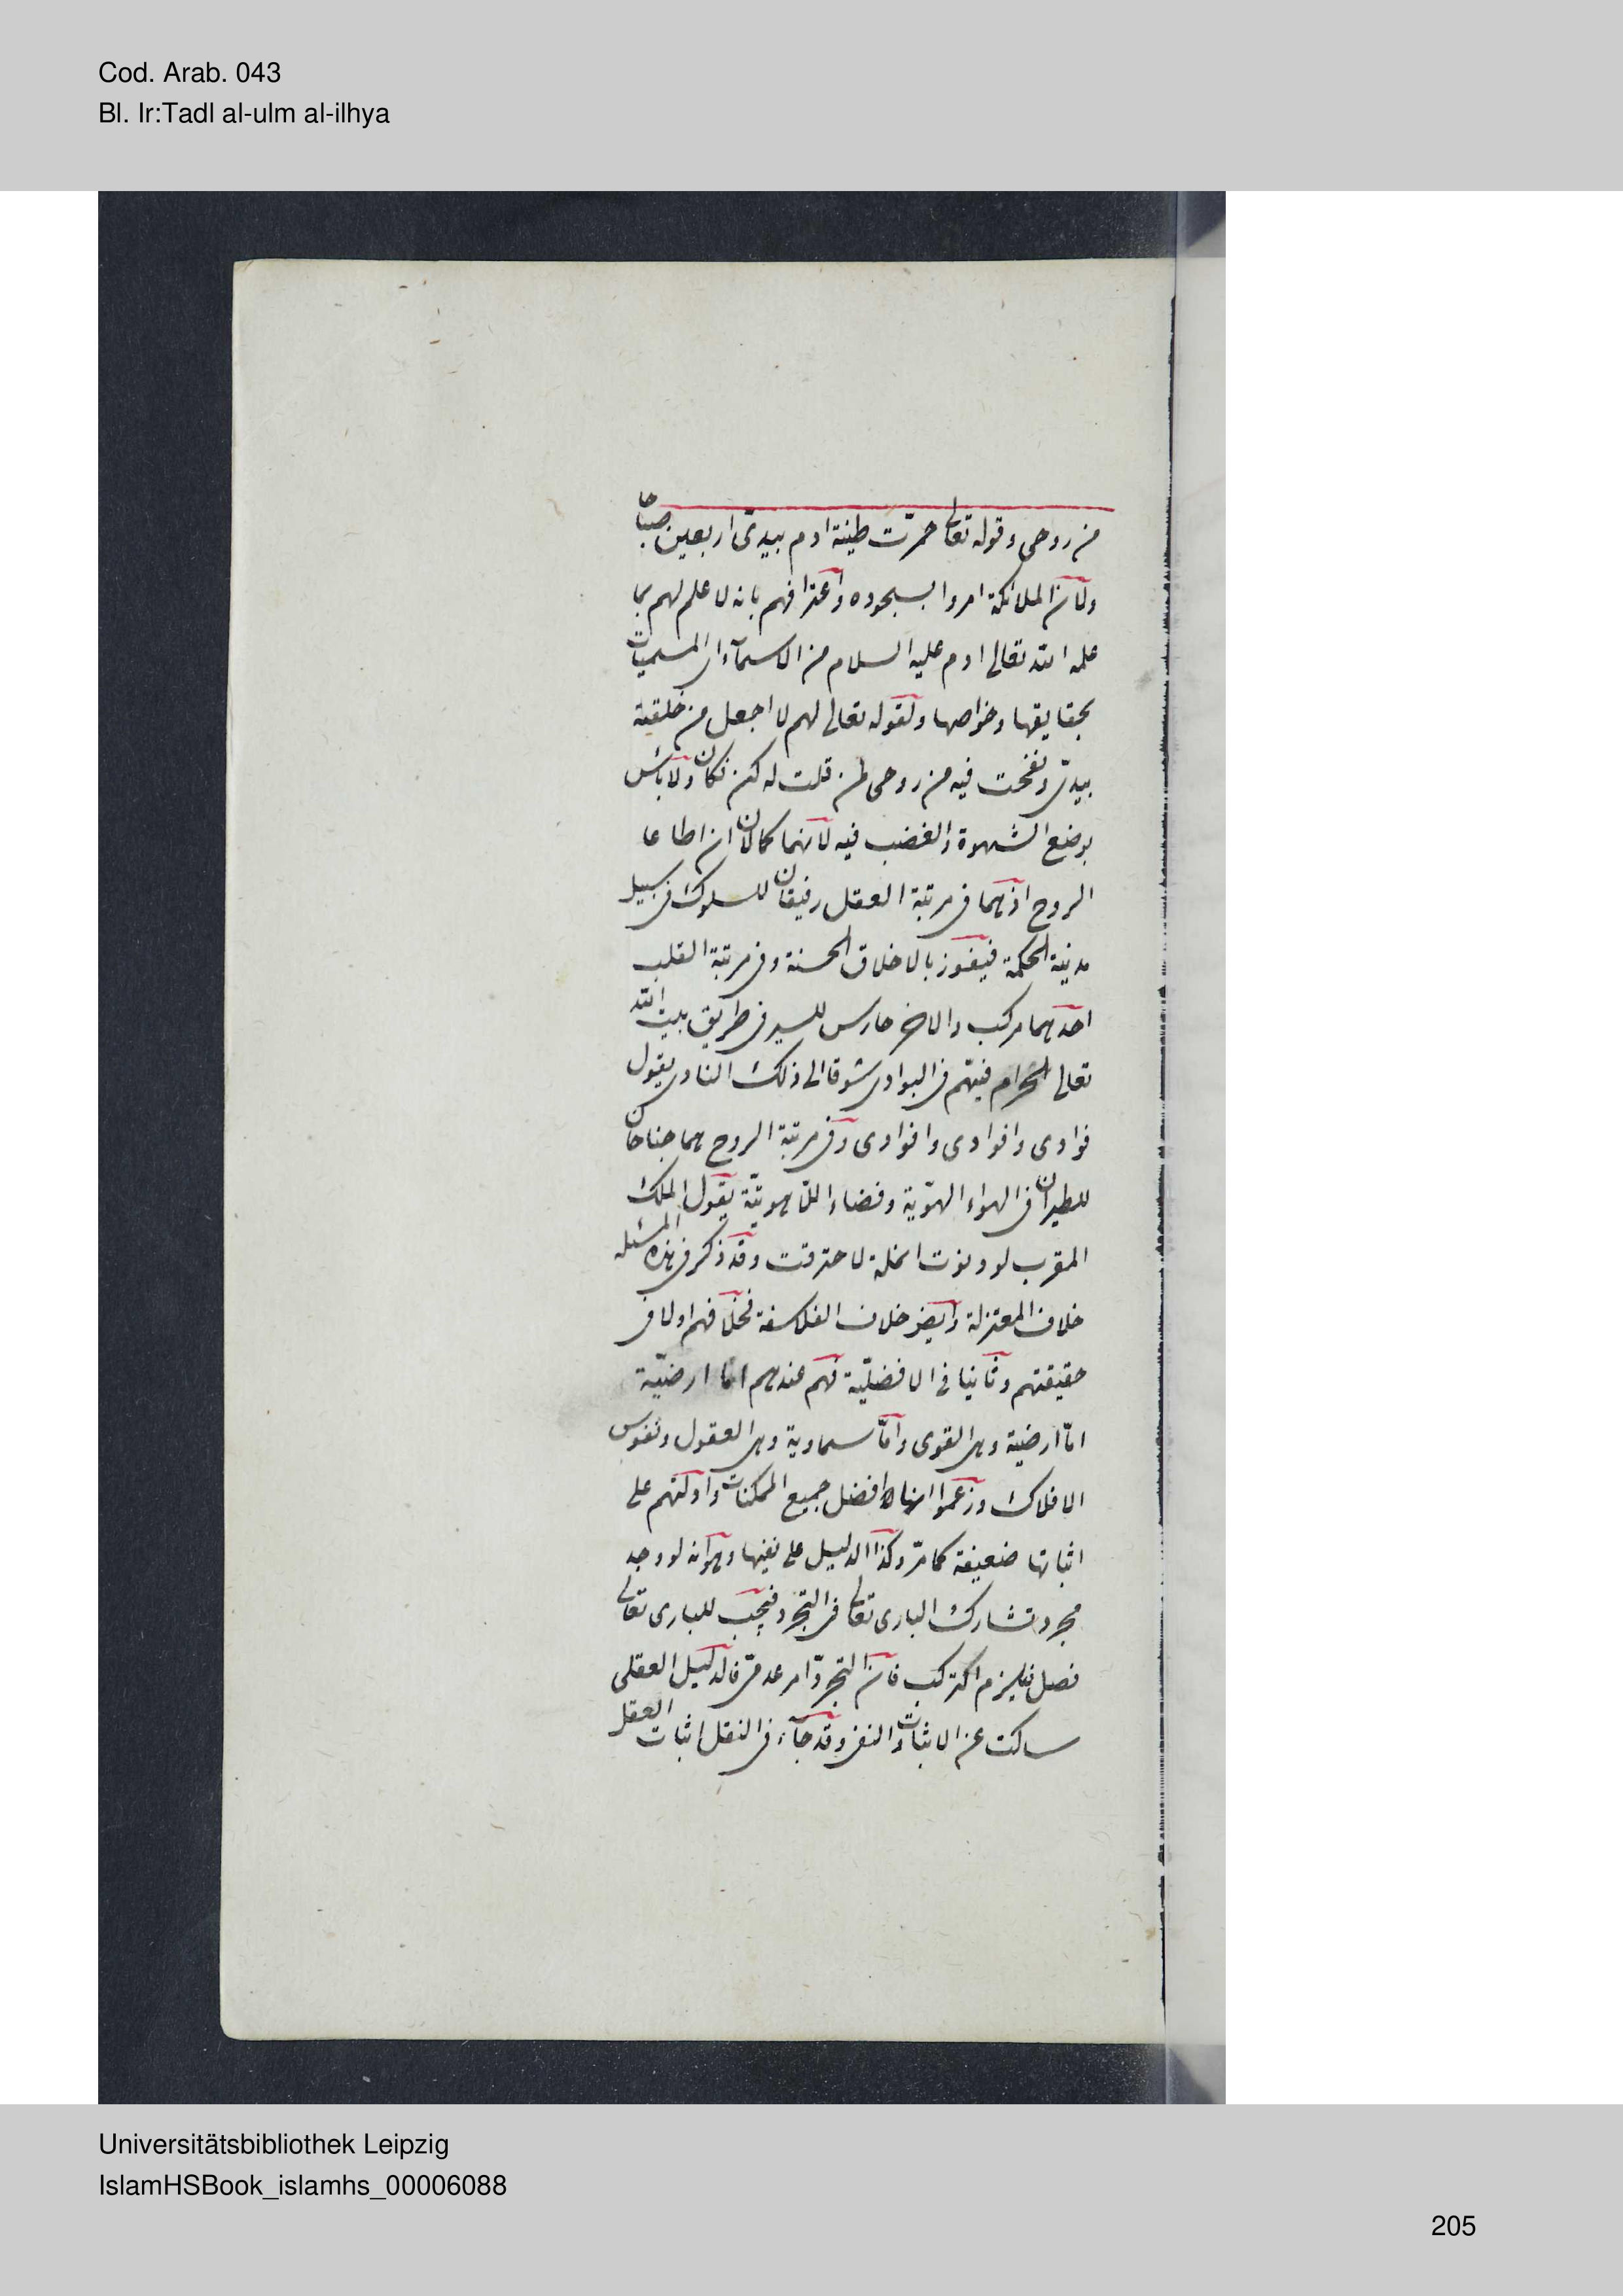 Cod. Arab. 043
Bl. Ir:Tadl al-ulm al-ilhya
من روحى وقوله تعالى خمرت طينة ادم بيدى اربعين صباحا
ولان الملائكة امروا بسجوده واعترافهم بانه لا علم لهم بما
علمه الله تعالى ادم عليه السلام من الاسماء اى المسميات
بحقايقها وخواصها ولقوله تعالى لهم لا اجعل من خلقته
بيدى ونفخت فيه من روحى كمن قلت له كن فكان ولا بأس
بوضع الشهوة والغضب فيه لانهما كمالان ان اطاعا
الروح اذ هما فى مرتبة العقل رفيقان للسلوك فى سبيل
مدينة الحكمة فيفوز بالاخلاق الحسنة وفى مرتبة القلب
احدهما مركب والاخر حارس للسير فى طريق بيت الله
تعالى الحرام فيهم فى البوادى شوقا الى ذلك النادى يقول
فوادى وافوادى وافوادى وفى مرتبة الروح هما جناحان
للطيران فى الهواء الهوية وفضاء اللاهوتية يقول الملك
المقرب لو دنوت انملة لاحترقت وقد ذكر فى هذه المسئله
خلاف المعتزلة وايضا خلاف الفلاسفة فخلافهم اولا فى
حقيقتهم وثانيا فى الافضلية فهم عندهم اما ارضية
اما ارضية وهى القوى واما سماوية وهى العقول ونفوس
الافلاك وزعموا انها افضل جميع الممكنات وادلتهم على
اثباتها ضعيفة كما مر وكذا الدليل على نفيها وهو انه لو وجد
مجرد تشارك البارى تعالى فى التجرد فيجب للبارى تعالى
فصل فيلزم التركب فان التجرد امر عدمى فالدليل العقلى
ساكت عن الاثبات والنفى وقد جاء فى النقل اثبات العقل
Universitätsbibliothek Leipzig
IslamHSBook_islamhs_00006088
205